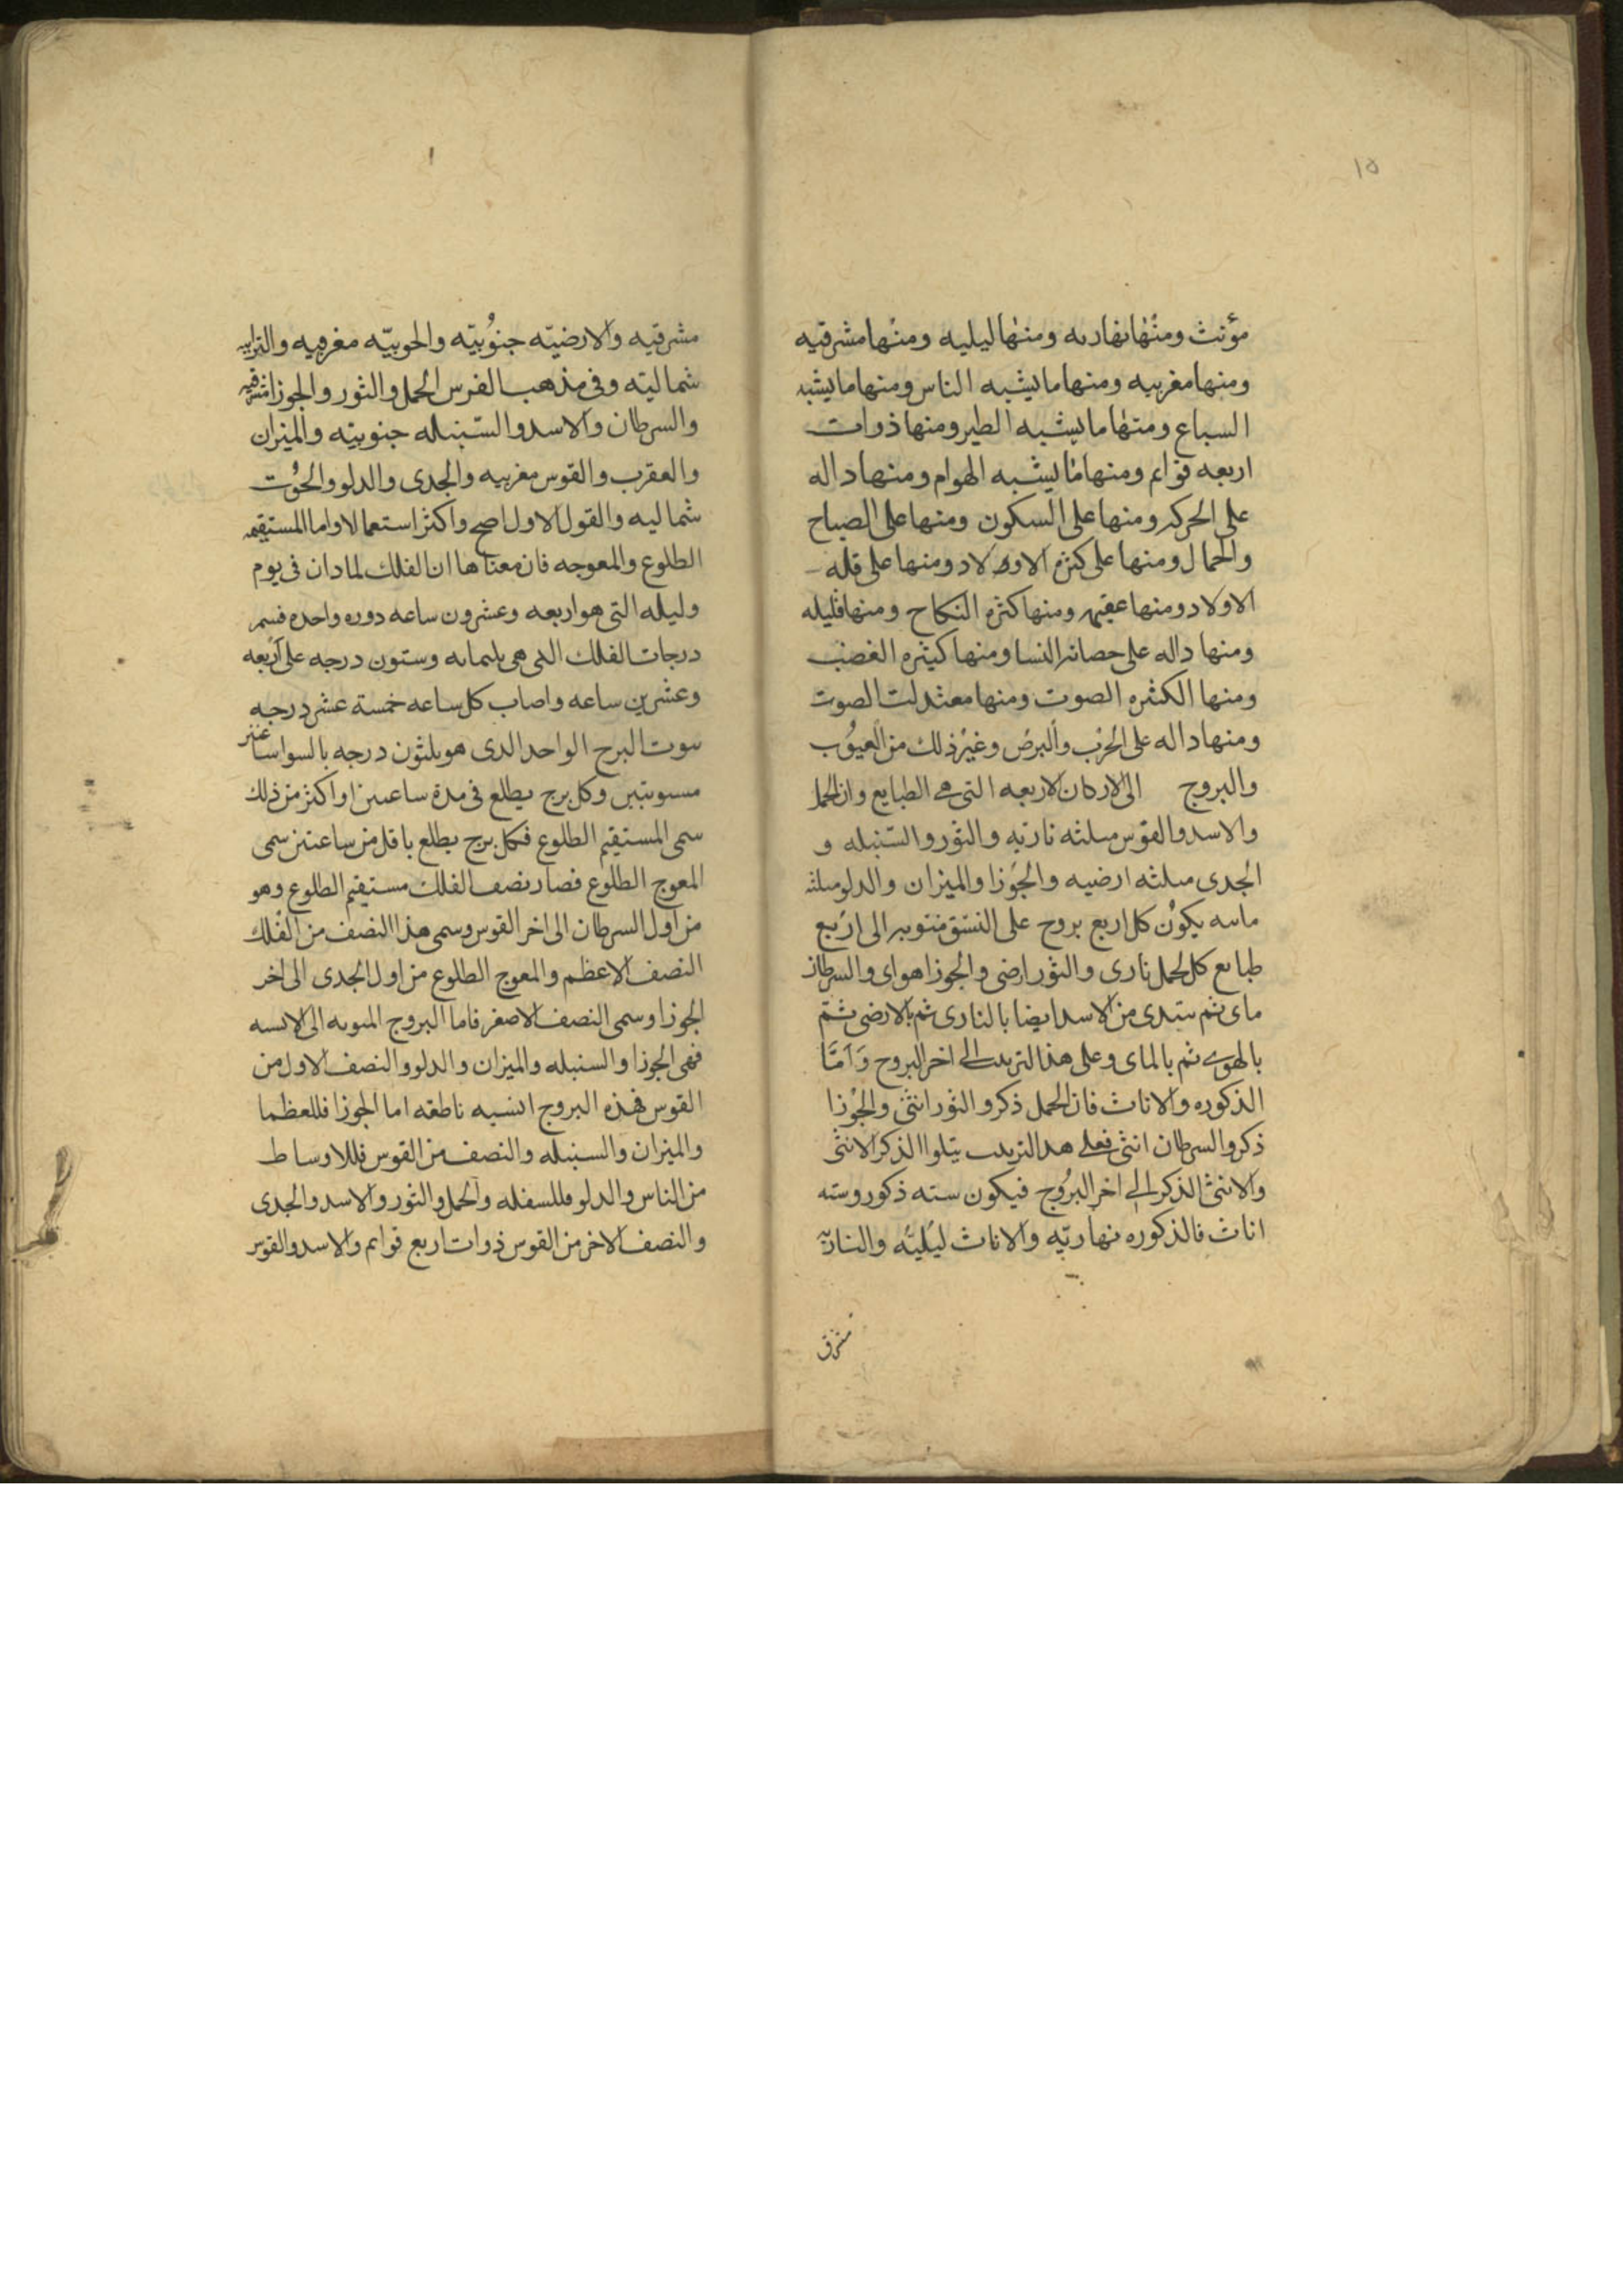 ١٥
مؤنث ومنها نهاريه ومنها ليليه ومنها مشرقيه
ومنها مغربيه ومنها ما يشبه الناس ومنها ما يشبه
السباع ومنها ما يشبه الطير ومنها ذوات
اربعه قوايم ومنها ما يشبه الهوام ومنها داله
على الحركه ومنها على السكون ومنها على الصباح
والجمال ومنها على كثره الاولاد ومنها على قله
الاولاد ومنها عقيمه ومنها كثره النكاح ومنها قليله
ومنها داله على حصانه النسا ومنها كثيره الغضب
ومنها الكثره الصوت ومنها معتدلت الصوت
ومنها داله على الجرب والبرص وغير ذلك من العيوب
والبروج الى الاركان الاربعه التى هى الطبايع وان الحمل
والاسد والقوس مثلثه ناريه والثور والسنبله و
الجدى مثلثه ارضيه والجوزا والميزان والدلو مثلثه
يكون كل اربع بروج على النسق منسوبه الى اربع
طبايع كل الحمل نارى والثور ارضى والجوزا هواى والسرطان
ماى ثم يبتدى من الاسد ايضا بالنارى ثم بالارضى ثم
بالهوى ثم بالماى وعلى هذا الترتيب الى اخر البروج وامَّا
الذكوره والاناث فان الحمل ذكر والثور انثى والجوزا
ذكر والسرطان انثى فعلى هدا الترتيب يتلوا الذكر الانثى
والانثى الذكر الى اخر البروج فيكون سته ذكور وسته
اناث فالذكوره نهاريّه والاناث ليليّه والناريّه
مشرق
١
مشرقيه والارضيّه جنوُبيّه والهوييّه مغربيه والترابيه
شماليّه وفى مذهب الفرس الحمل والثور والجوزا شرقيه
والسرطان والاسد والسنبله جنوبيّه والميزان
والعقرب والقوس مغربيه والجدى والدلو والحوُت
شماليه والقول الاول اصح واكثر استعمالا واما المستقيمه
الطلوع والمعوجه فان معناها ان الفلك لما دان فى يوم
وليله التى هو اربعه وعشرون ساعه دوره واحده قسم
درجات الفلك التى هى ثلثمايه وستون درجه على اربعه
وعشرين ساعه واصاب كل ساعه خمسة عشر درجه
البرج الواحد الدى هو ثلثون درجه بالسوا ساعتىن
مستويتين وكل برج يطلع فى مدة ساعتىن او اكثر من ذلك
سمى المستقيم الطلوع فكل برج يطلع باقل من ساعتين سمى
المعوج الطلوع فصار نصف الفلك مستقيم الطلوع وهو
من اول السرطان الى اخر القوس وسمى هذا النصف من الفلك
النصف الاعظم والمعوج الطلوع من اول الجدى الى اخر
الجوزا وسمى النصف الاصغر فاما البروج المنسوبه الى الانسيه
فهى الجوزا والسنبله والميزان والدلو والنصف الاول من
القوس فهذه البروج انسيه ناطقه اما الجوزا فللعظما
والميزان والسنبله والنصف من القوس فللاوساط
من الناس والدلو فللسفله والحمل والثور والاسد والجدى
والنصف الاخر من القوس ذوات اربع قوايم والاسد والقوس